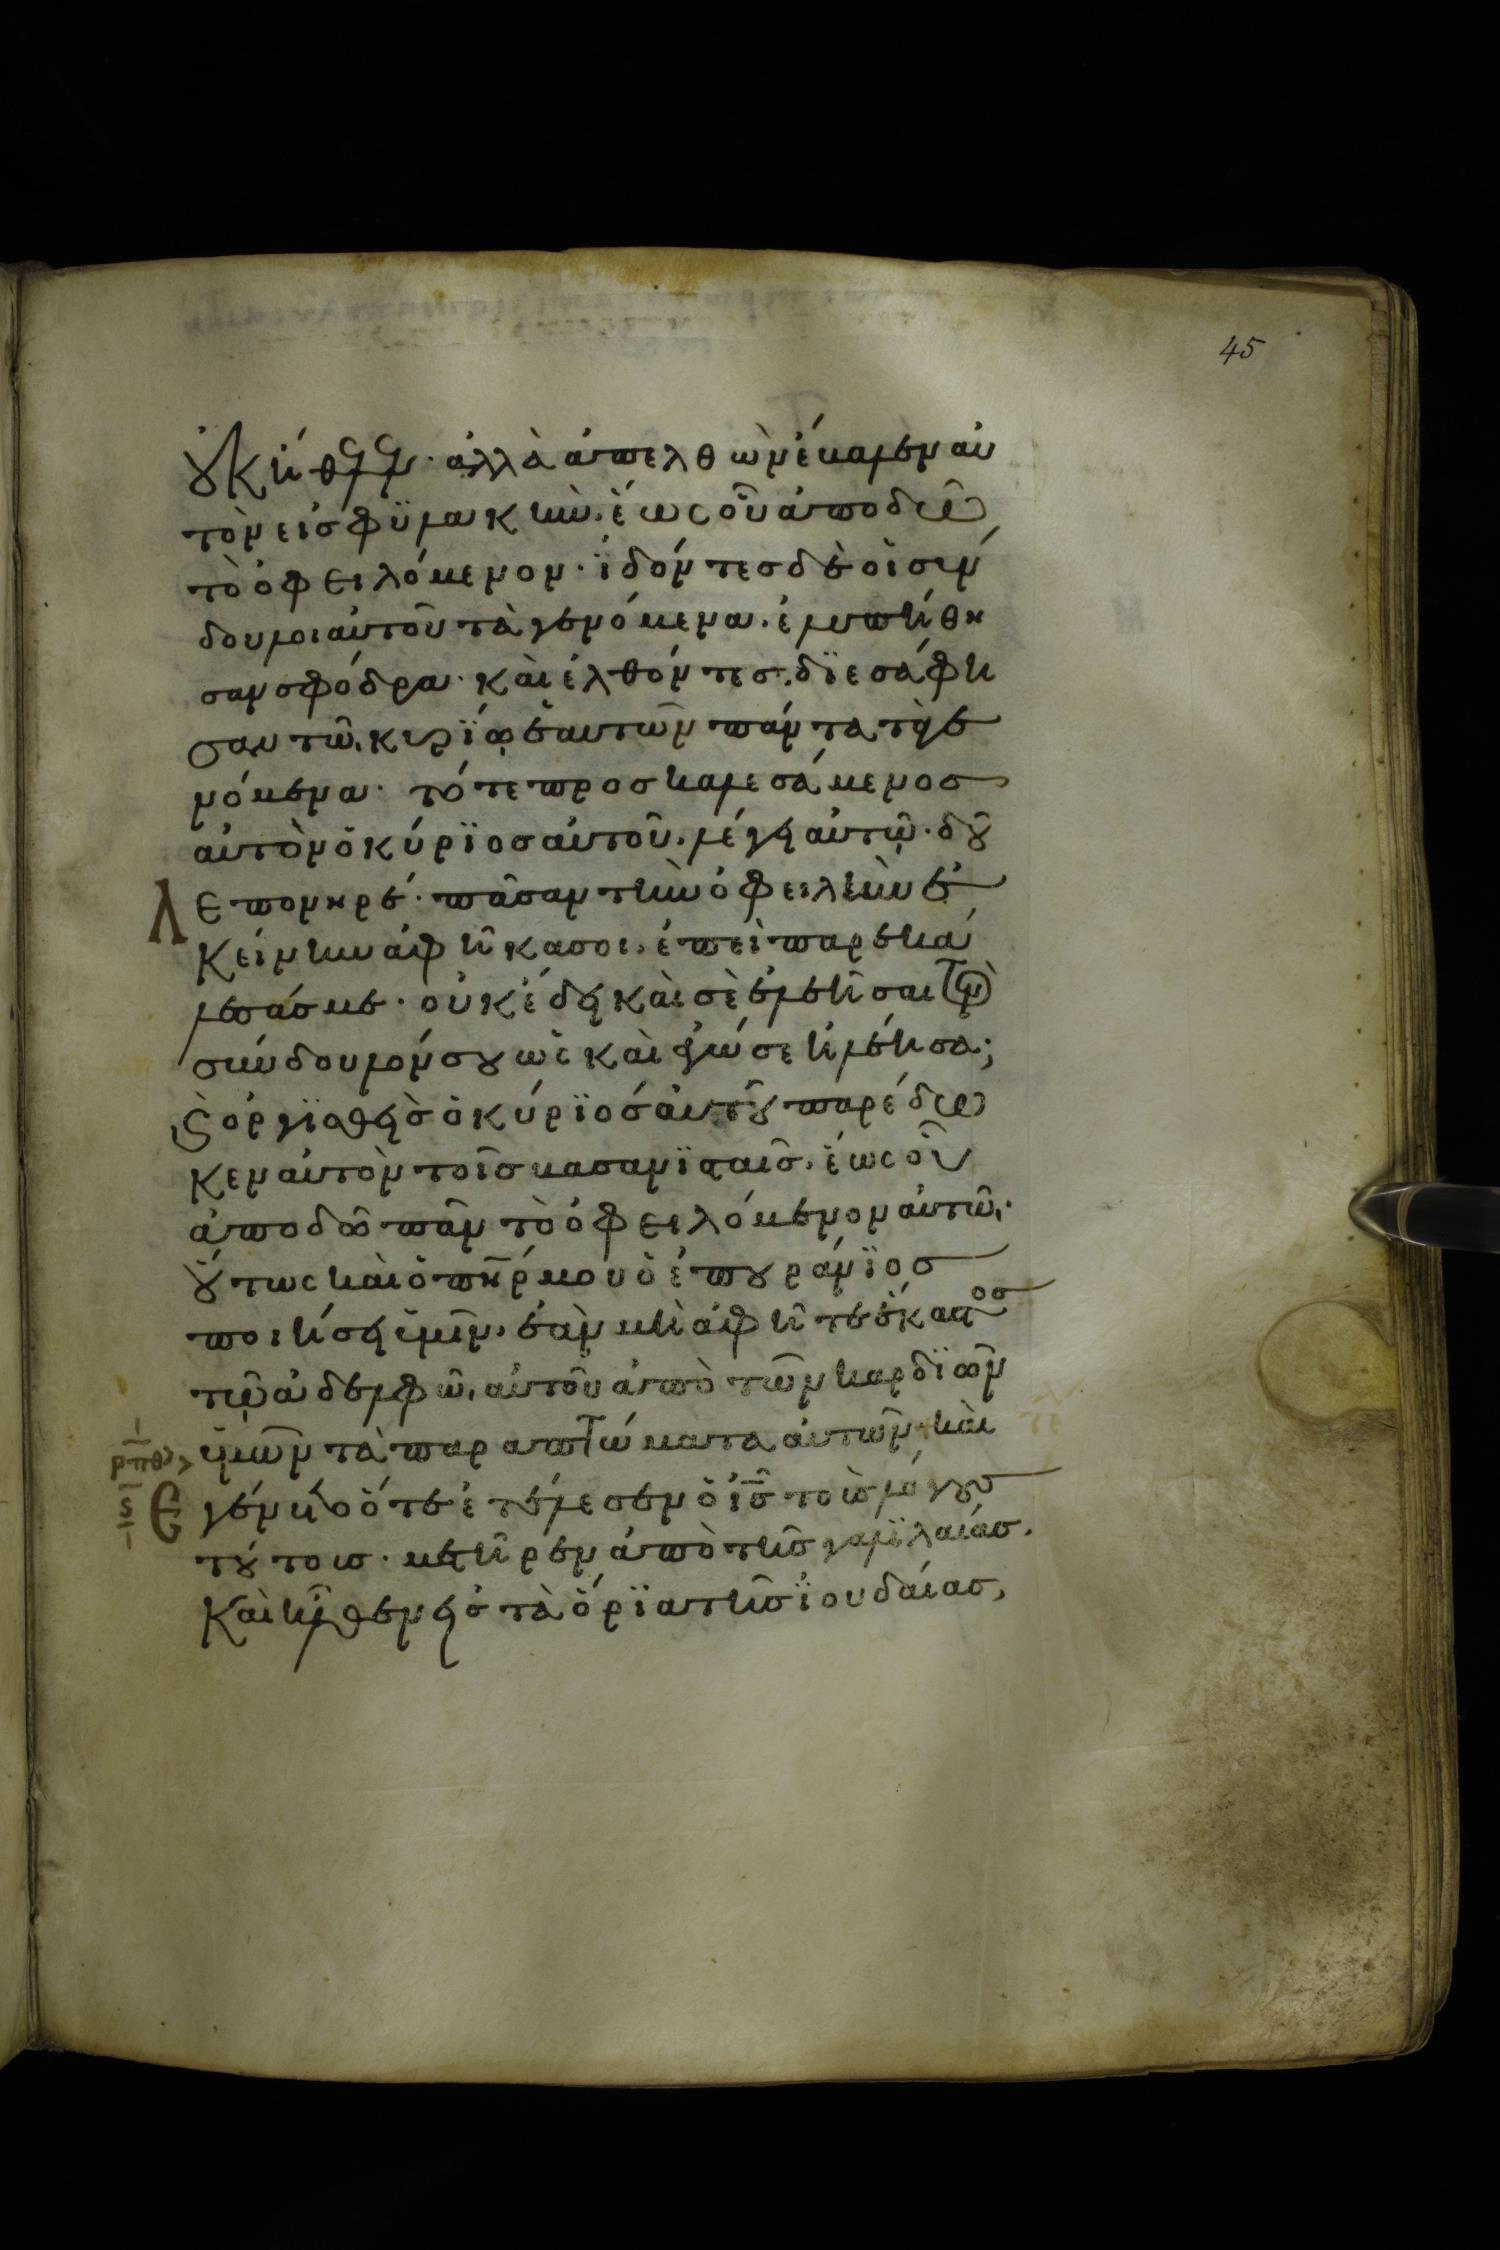 45
οὐκ ἤθελεν· ἀλλὰ ἀπελθὼν ἔβαλεν αὐ
τὸν εἰσ φϋλακὴν, ἕως οὗ ἀποδῶ
τὸ ὀφειλόμενον· ϊδόντεσ δὲ οἱ σύν
δουλοι αὐτοῦ τὰ γενόμενα, ἐλυπήθη
σαν σφόδρα· καὶ ἐλθόντεσ, δϊεσάφη
σαν τῶ κυρίω ἑαυτῶν πάντα τὰ γε
νόμενα· τότε προσκαλεσάμενοσ
αὐτὸν ὁ κύρϊοσ αὐτοῦ, λέγει αὐτῶ· δοῦ
λε πονηρέ· πᾶσαν τὴν ὀφειλὴν ἐ
κείνην ἀφῆκα σοι, ἐπεὶ παρεκά
λεσάσ με· οὐκ ἔδει καὶ σὲ ἐλεῆσαι τὸν
σύνδουλόν σου ὡς καὶ ἐγώ σε ἠλέησα;
καὶ ὀργϊσθεὶσ ὁ κύρϊοσ αὐτοῦ παρέδω
κεν αὐτὸν τοῖσ βασανϊσταῖσ, ἕως οὗ
ἀποδῶ πᾶν τὸ ὀφειλόμενον αὐτῶ·
οὕτως καὶ ὁ πηρ μου ὁ ἐπουράνϊοσ
ποιήσει ὑμῖν, ἐὰν μὴ ἀφῆτε ἕκαστοσ
τῶ ἀδελφῶ αὐτοῦ ἀπὸ τῶν καρδϊῶν
ρπθ ὑμῶν τὰ παραπτώματα αὐτῶν· καὶ
ς ἐγένετο ὅτε ἐτέλεσεν ὁ ισ τοὺσ λόγουσ
τούτουσ· μετῆρεν ἀπὸ τῆσ γαλϊλαίασ.
καὶ ἦλθεν εἰσ τὰ ὅρϊα τῆσ ϊουδαίασ,